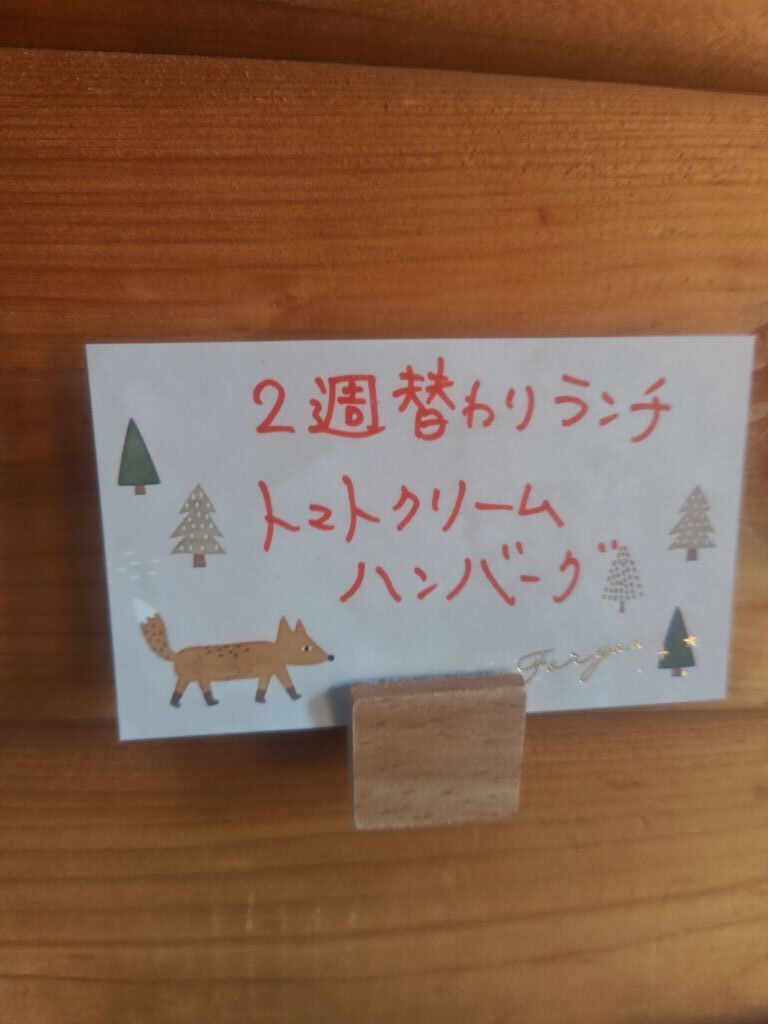 2週替わりランチ
トマトクリーム
ハンバーグ
For you